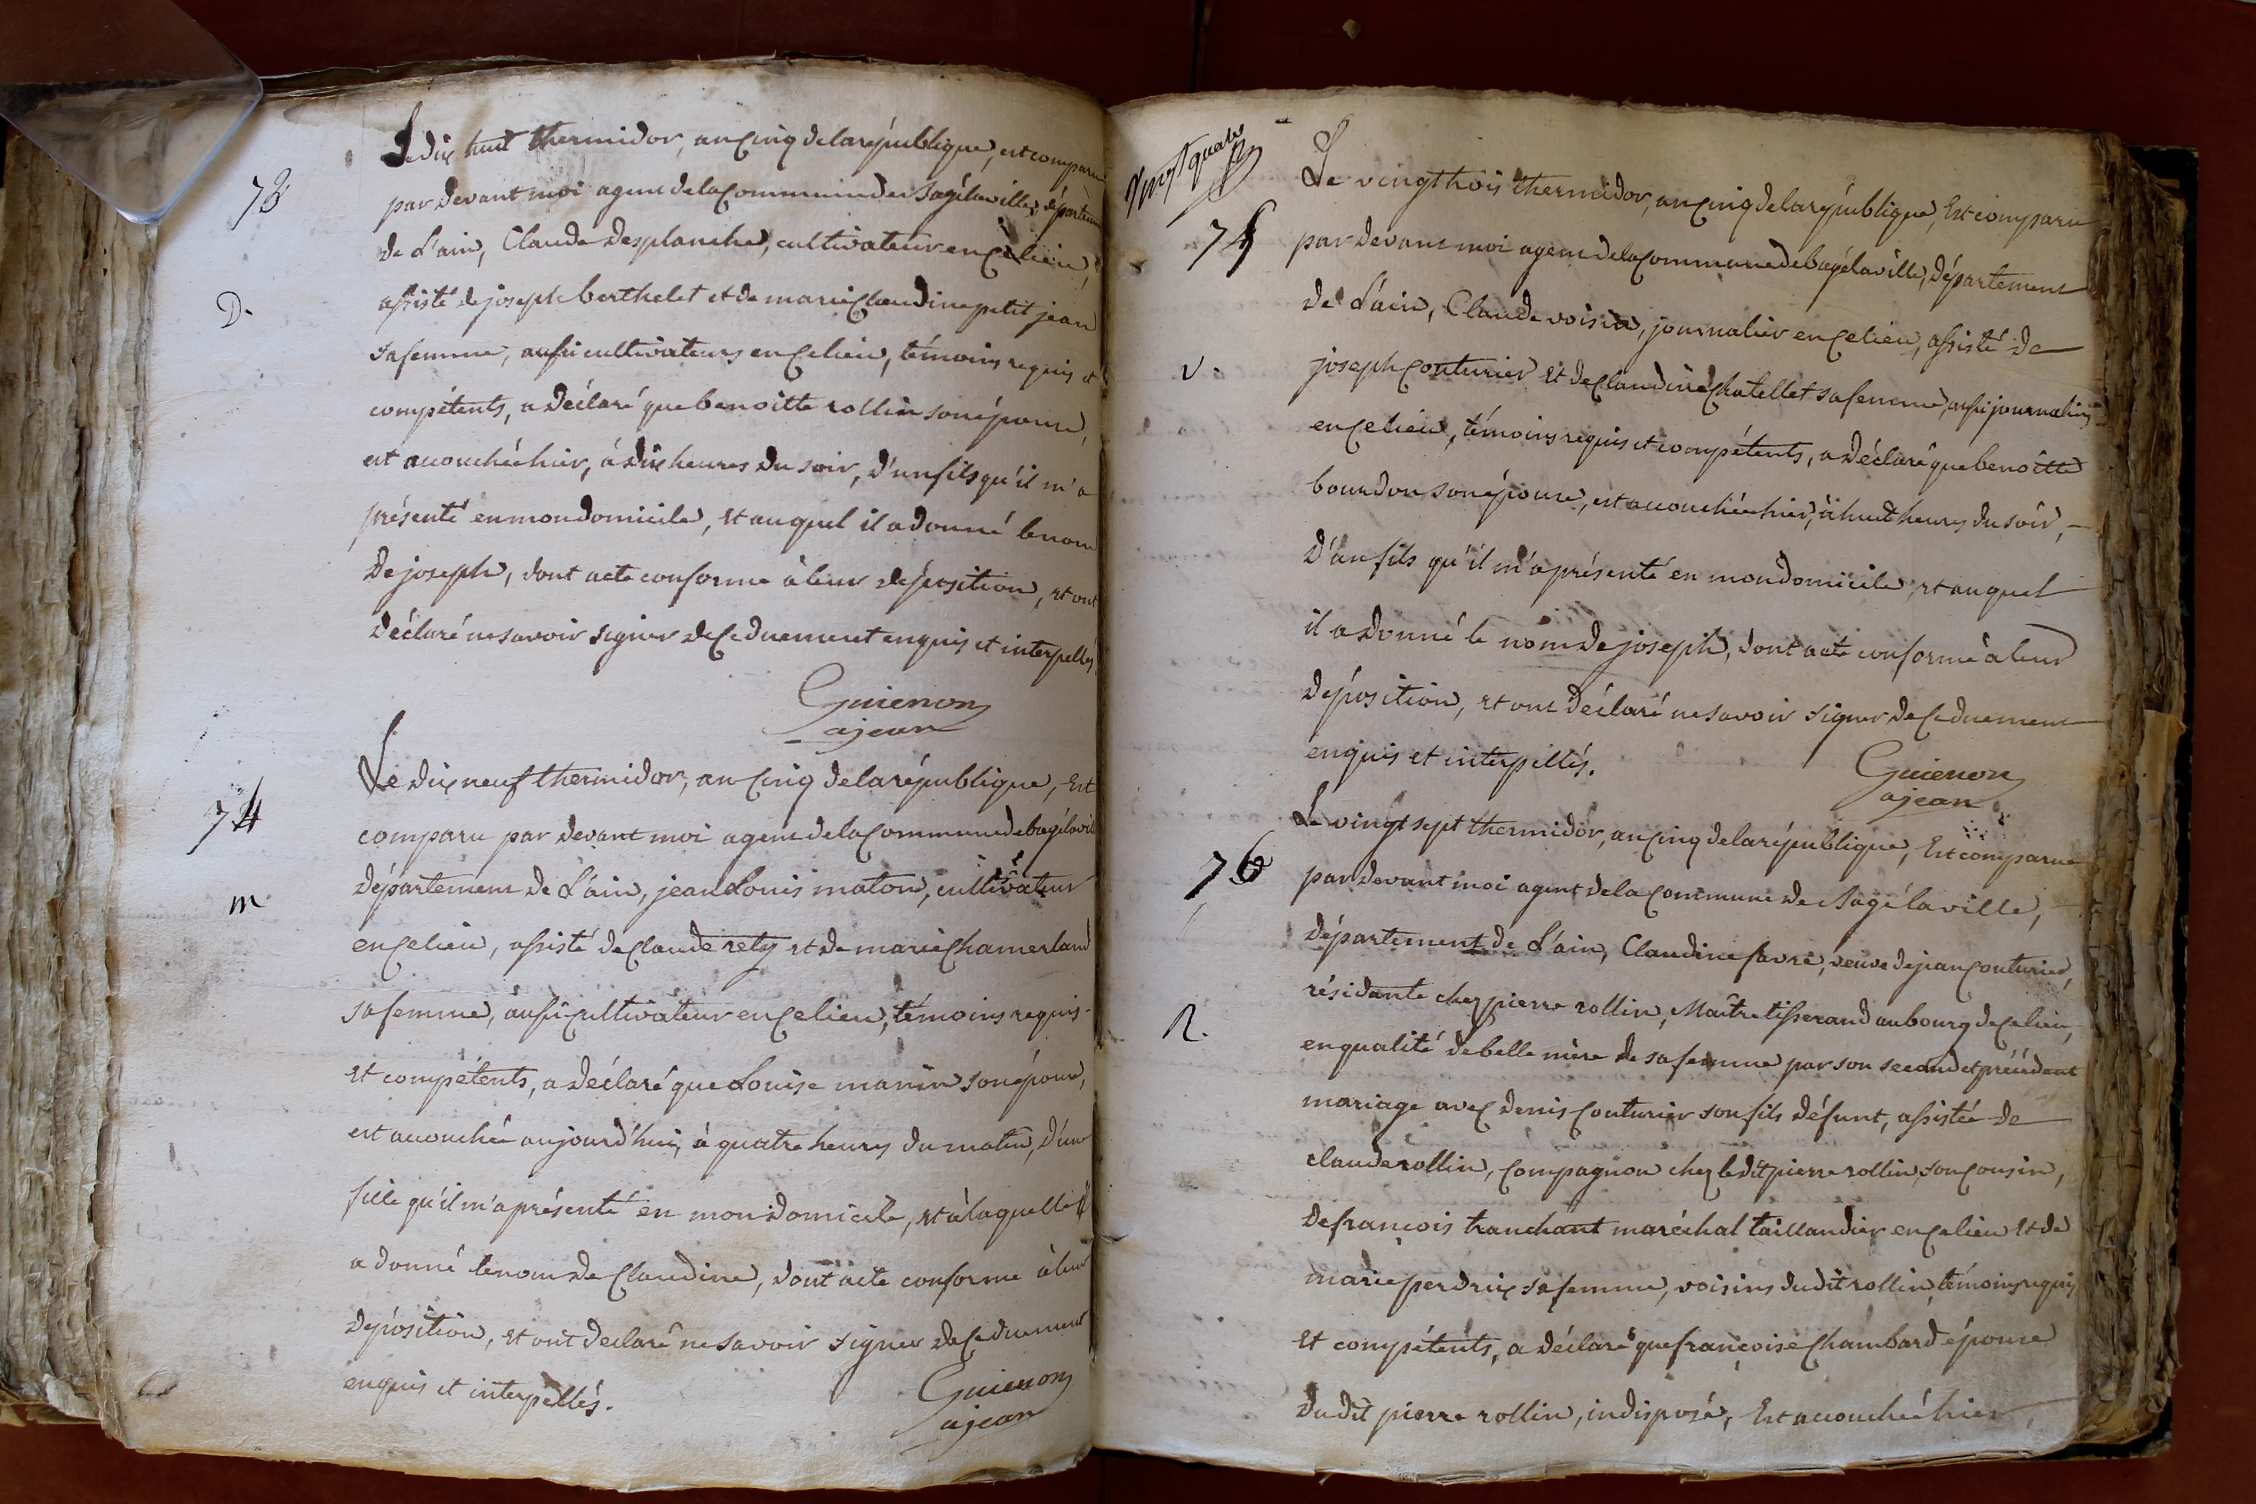 73
Le dix huit thermidor, an Cinq de la république, est comparu
par devant moi agent de la Commune de Bagélaville, départem
de L'ain, Claude Desplanche, cultivateur en Ce lieu,
D.
assisté de joseph berthelet et de marie Claudine petit jean
sa femme, aussi cultivateurs en Ce lieu, témoins requis et
compétents, a déclaré que benoitte rollin son épouse,
est accouchée hier, à dix heures du soir, d'un fils qu'il m'a
présenté en mon domicile, et auquel il a donné le nom
de joseph, dont acte conforme à leur déposition, et ont
déclaré ne savoir signer de Ce duement enquis et interpellés
Guienon
ajean
74
Le dix neuf thermidor, an Cinq de la république, Est
comparu par devant moi agent de la Commune de bagélavill
département de L'ain, jean Louis maton, cultivateur
m
en Ce lieu, assisté de Claude rety et de marie Chamerland
sa femme, aussi Cultivateur en Ce lieu, témoins requis
et compétents, a déclaré que Louise manin son épouse,
est accouchée aujourd'hui, à quatre heures du matin, d'une
fille qu'il m'a présenté en mon domicile, et à laquelle il
a donné le nom de Claudine, dont acte conforme à leur
déposition, et ont déclaré ne savoir signer de Ce duement
enquis et interpellés.
Guienon
ajean
vingt quatre
75
Le vingt trois thermidor, an Cinq de la république, Est comparu
par devant moi agent de la Commune de bagélaville, département
de L'ain, Claude voisin, journalier en Ce lieu, assisté de
v.
joseph Couturier et de Claudine Chatellet sa femme, aussi journaliers
en Ce lieu, témoins requis et compétents, a déclaré que benoitte
bourdon son épouse, est accouchée hier, à huit heures du soir,
d'un fils qu'il m'a présenté en mon domicile, et auquel
il a donné le nom de joseph, dont acte conforme à leur
déposition, et ont déclaré ne savoir signer de Ce duement
enquis et interpellés.
Guienon
ajean
76
Le vingt sept thermidor, an Cinq de la république, Est comparue
par devant moi agent de la Commune de Bagélaville,
département de L'ain, Claudine favre, veuve de jean Couturier,
résidante chez pierre rollin, Maître tisserand au bourg de Ce lieu,
R.
en qualité de belle mère de sa femme par son second et précédent
mariage avec denis Couturier son fils défunt, assistée de
claude rollin, Compagnon chez ledit pierre rollin, son Cousin,
de francois tranchant maréchal taillandier en Ce lieu et de
marie perdrix sa femme, voisins dudit rollin, témoins requis
et compétents, a déclaré que françoise Chambard épouse
dudit pierre rollin, indisposé, Est accouchée hier